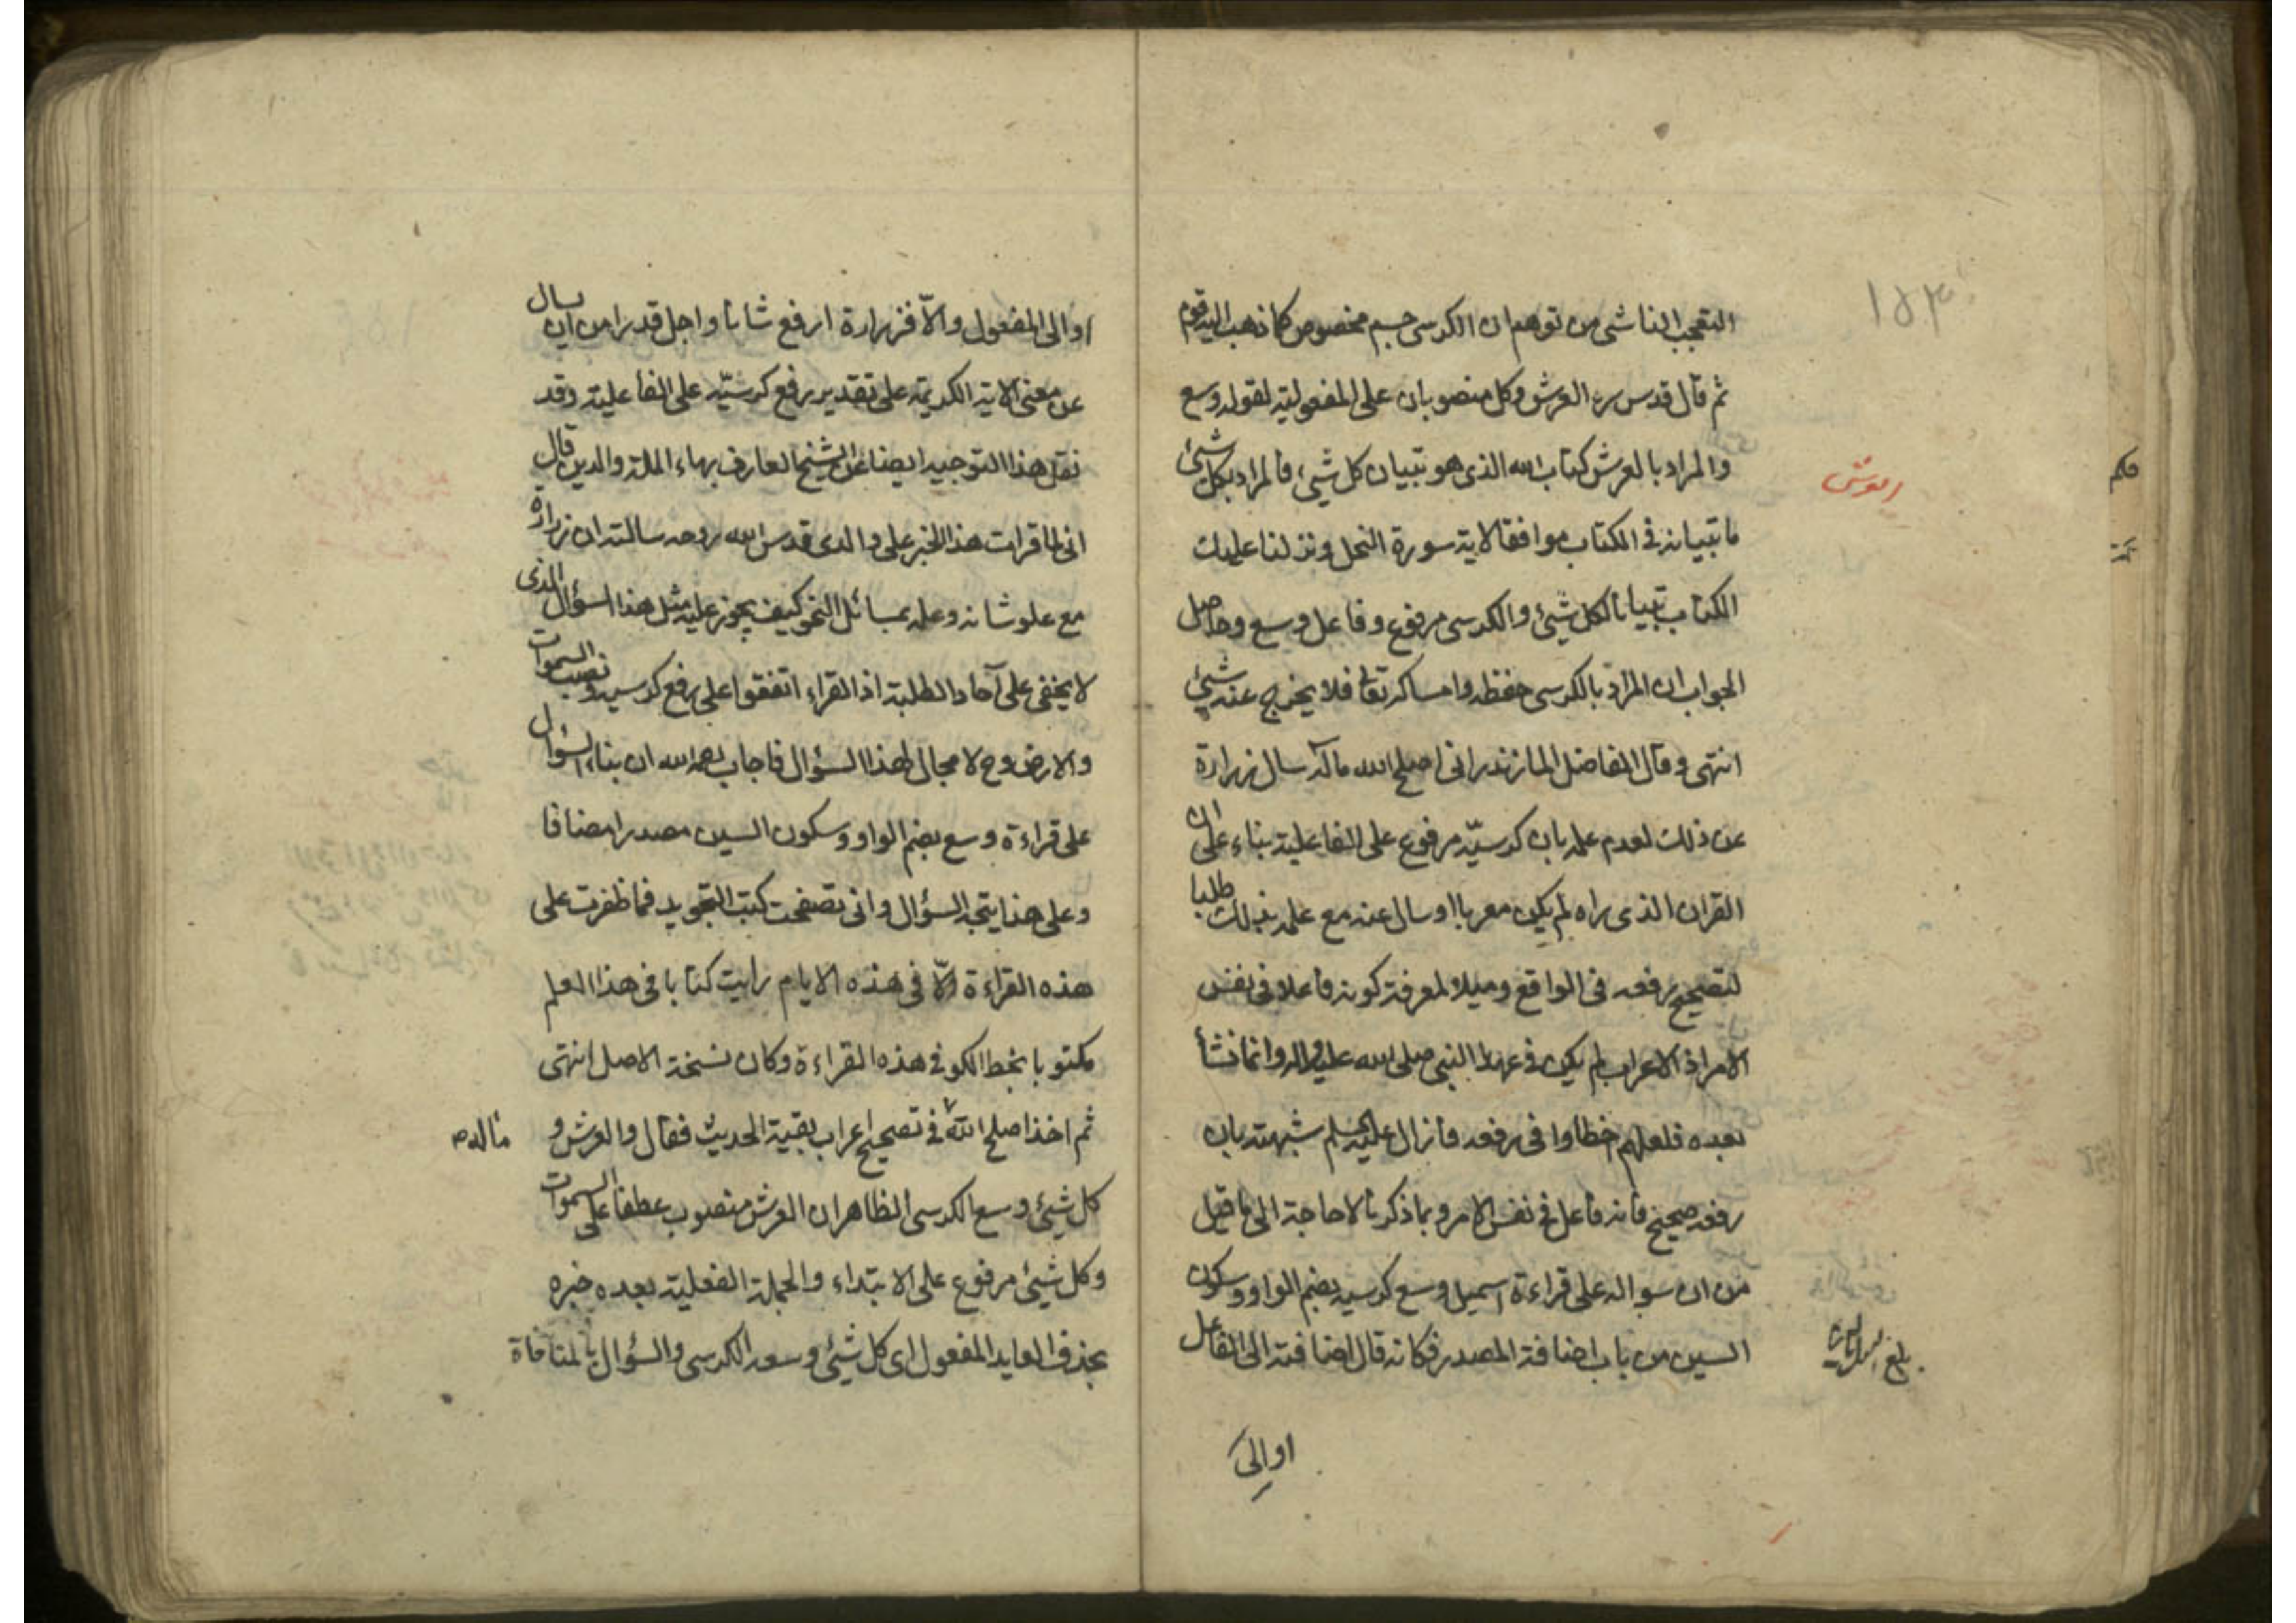 ١٥٣
التعجب الناشی من توهم ان الکرسی جسم مخصوص کما ذهب الیه قوم
ثم قال قدس سره العرش وکل منصوبان علی المفعولیة لقوله وسع
والمراد بالعرش کتاب الله الذی هو تبیان کل شیئ فالمراد بکل شیئ
العرش
ما تبیانه فی الکتاب موافقا لایة سورة النحل ونزلنا علیک
الکتاب تبیانا لکل شیئ والکرسی مرفوع وفاعل وسع وحاصل
الجواب ان المراد بالکرسی حفظه وامساکه تعالی فلا یخرج عنه شیئ
انتهی وقال الفاضل المازندرانی اصلح الله ماله سال زرارة
عن ذلک لعدم علمه بان کرسیّه مرفوع علی الفاعلیة بناء علی ان
القران الذی راه لم یکن معربا او سال عنه مع علمه بذلک طلبا
لتصحیح رفعه فی الواقع ومیلا لمعرفة کونه فاعلا فی نفس
الامر اذ الاعراب لم یکن فی عهد النبی صلی الله علیه واله وانما نشأ
بعده فلعلهم اخطاوا فی رفعه فازال علیه السلم شبهته بان
رفعه صحیح فانه فاعل فی نفس الامر وبما ذکرنا لا حاجة الی ما قیل
من ان سواله علی قراءة وسع کرسیه بضم الواو وسکون
السین من باب اضافة المصدر فکانه قال اضافته الی الفاعل
بلغ
او الی
او الی المفعول والاّ فزرارة ارفع شانا واجل قدرا من ان یسال
عن معنی الایة الکریمة علی تقدیر رفع کرسیّه علی الفاعلیة وقد
نقل هذا التوجیه ایضا عن الشیخ العارف بهاء الملة والدین قال
انی لما قرات هذا الخبر علی والدی قدس الله روحه سالته ان زرارة
مع علو شانه وعلمه بمسائل النحو کیف یجوز علیه مثل هذا السؤال الذی
لا یخفی علی آحاد الطلبة اذ القراء اتفقوا علی رفع کرسیه ونصب السموات
والارض وح لا مجال لهذا السؤال فاجاب رحمه الله ان بناء السؤال
علی قراءة وسع بضم الواو وسکون السین مصدرا مضافا
وعلی هذا یتجه السؤال وانی تصفحت کتب التجوید فما ظفرت علی
هذه القراءة الاّ فی هذه الایام رایت کتابا فی هذا العلم
مکتوبا بخط الکوفی هذه القراءة وکان نسخة الاصل انتهی
ثم اخذ اصلح الله فی تصحیح اعراب بقیة الحدیث فقال والعرش و
ماله
کل شیئ وسع الکرسی الظاهر ان العرش منصوب عطفا علی السموات
وکل شیئ مرفوع علی الابتداء والجملة الفعلیة بعده خبره
بحذف العاید المفعول ای کل شیئ وسعه الکرسی والسؤال بالمنافاة